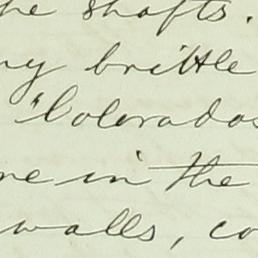 he shafts.
ny brittle
"Colorados
re in the
walls, co